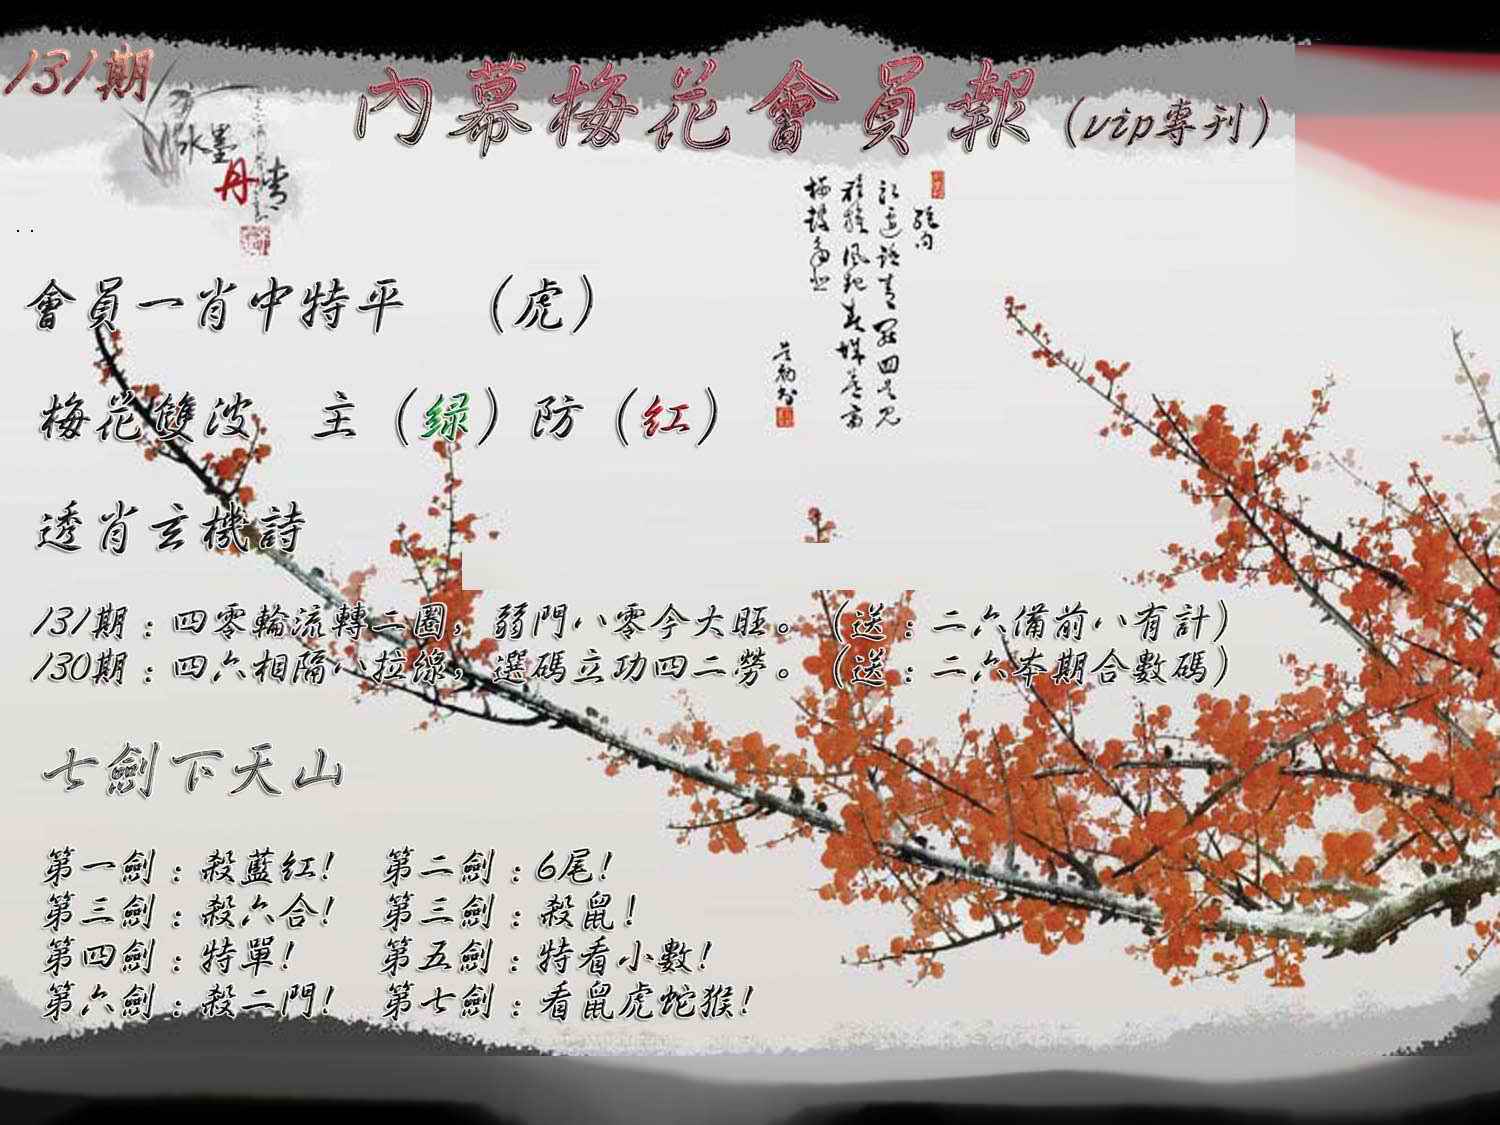 131期
內幕梅花會員報（vip專刊）
水墨
丹青
會員一肖中特平　（虎）
梅花雙波　主（绿）防（红）
透肖玄機詩
131期：四零輪流轉二圈，弱門八零今大旺。（送：二六備前八有計）
130期：四六相隔八拉線，選碼立功四二勞。（送：二六本期合數碼）
七劍下天山
第一劍：殺藍紅！　第二劍：6尾！
第三劍：殺六合！　第三劍：殺鼠！
第四劍：特單！　第五劍：特看小數！
第六劍：殺二門！　第七劍：看鼠虎蛇猴！